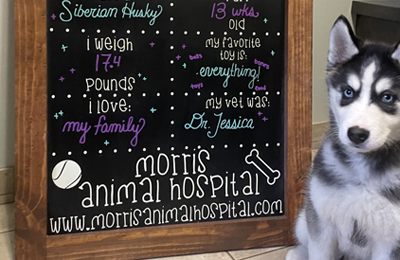 Siberian Husky
13 wks
old
i weigh
17.4
pounds
my favorite
toy is:
everything!
i love:
my family
my vet was:
Dr. Jessica
morris
animal hospital
www.morrisanimalhospital.com